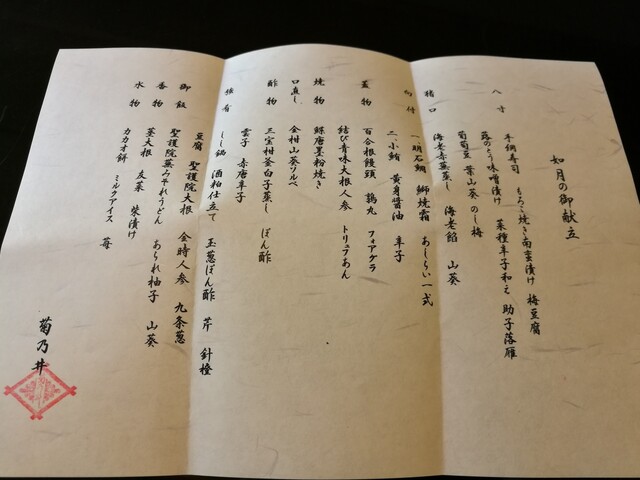 如月の御献立
八寸
手綱寿司 もろこ焼き南蛮漬け 梅豆腐
蕗のとう味噌漬け 菜種辛子和え 助子落雁
葡萄豆 葉山葵 のし梅
猪口
海老赤蕪蒸し 海老餡 山葵
向付
一、明石鯛 鰤焼霜 あしらい一式
二、小鮪 黄身醤油 辛子
蓋物
百合根饅頭 鶉丸 フォアグラ
結び青味大根人参 トリュフあん
焼物
鰆唐墨粉焼き
口直し
金柑山葵ソルベ
酢物
三宝柑釜白子蒸し ぽん酢
強肴
雲子 赤唐辛子
しし鍋 酒粕仕立て 玉葱ぽん酢 芹 針橙
豆腐 聖護院大根 金時人参 九条葱
御飯
聖護院蕪みぞれうどん あられ柚子 山葵
香物
茎大根 友菜 柴漬け
水物
カカオ餅 ミルクアイス 苺
菊乃井